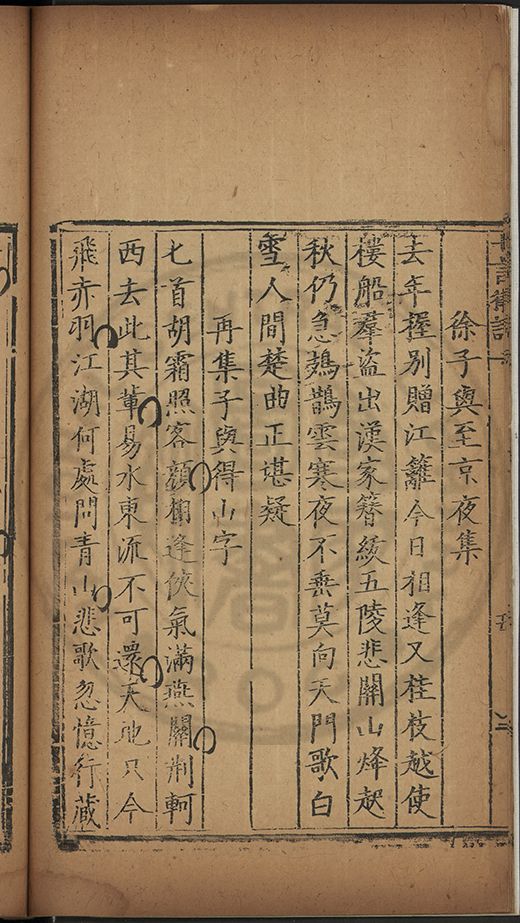 徐子與至京夜集
去年握別贈江籬今日相逢又桂枝越使
樓船羣盜出漢家簪紱五陵悲關山烽起
秋仍急鳷鵲雲寒夜不垂莫向天門歌白
雪人間楚曲正堪疑
再集子與得山字
匕首胡霜照客顏相逢俠氣滿燕關荊軻
西去此其輩易水東流不可還天地只今
飛赤羽江湖何處問青山悲歌忽憶行藏